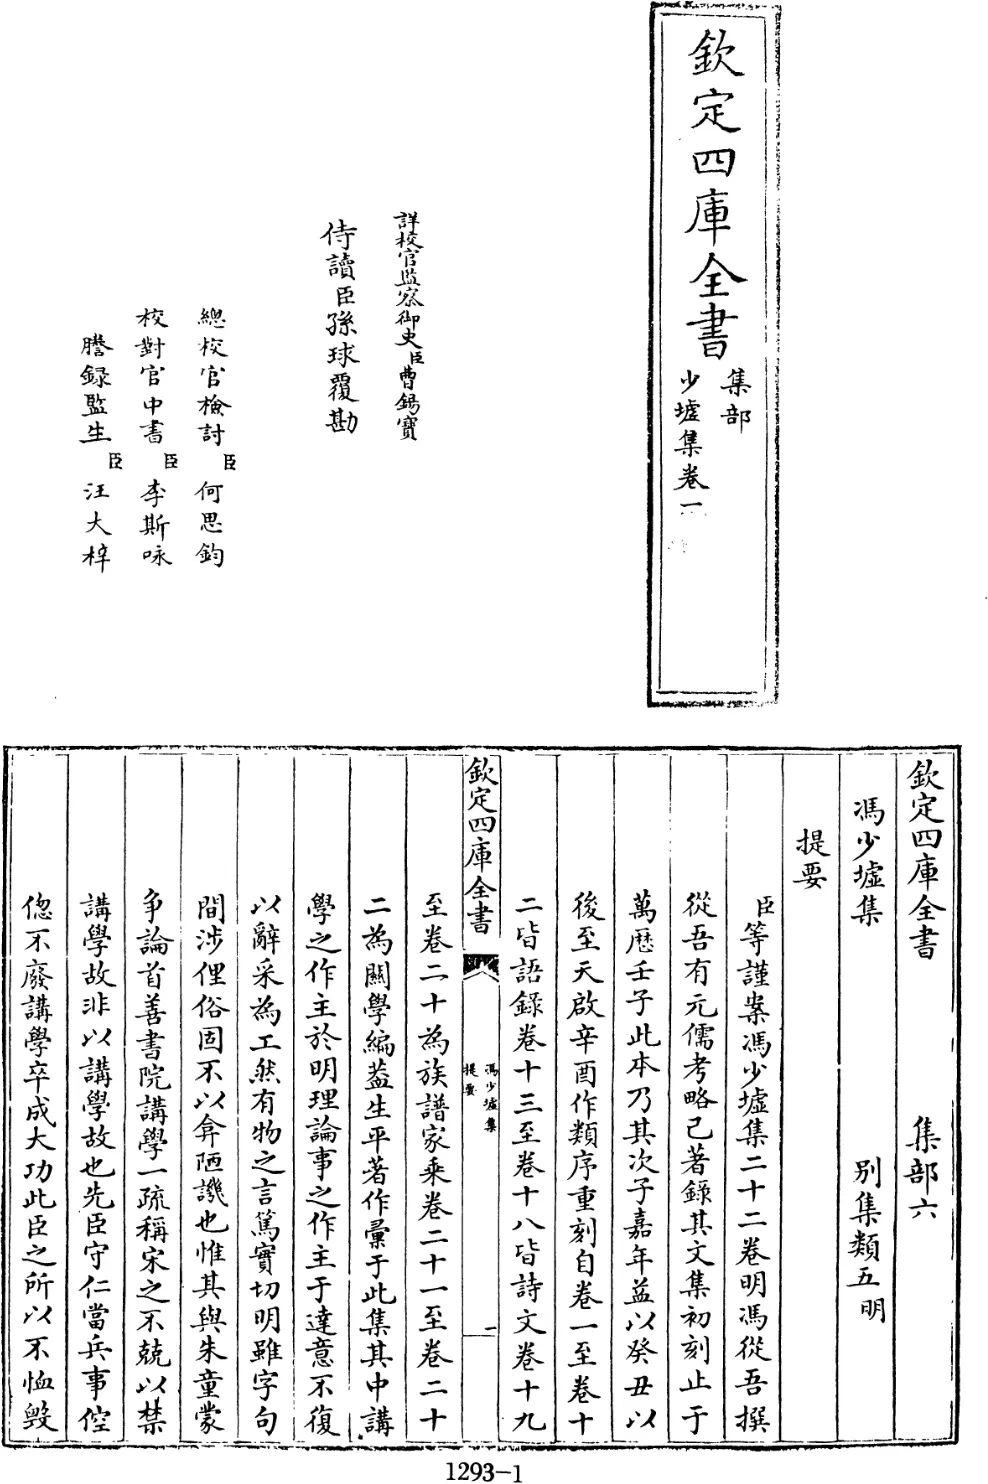 欽定四庫全書
集部
少墟集卷一
詳校官監察御史臣曹錫寶
侍讀臣孫球覆勘
總校官檢討臣何思鈞
校對官中書臣李斯咏
謄錄監生臣汪大梓
欽定四庫全書 集部六
馮少墟集 別集類五明
提要
臣等謹案馮少墟集二十二卷明馮從吾撰
從吾有元儒考略已著錄其文集初刻止于
萬歷壬子此本乃其次子嘉年益以癸丑以
後至天啟辛酉作類序重刻自卷一至卷十
二皆語錄卷十三至卷十八皆詩文卷十九
欽定四庫全書
馮少墟集
提要
一
至卷二十為族譜家乘卷二十一至卷二十
二為關學編蓋生平著作彙于此集其中講
學之作主於明理論事之作主于達意不復
以辭采為工然有物之言篤實切明雖字句
間涉俚俗固不以弇陋譏也惟其與朱童蒙
爭論首善書院講學一疏稱宋之不競以禁
講學故非以講學故也先臣守仁當兵事倥
偬不廢講學卒成大功此臣之所以不恤毀
1293-1